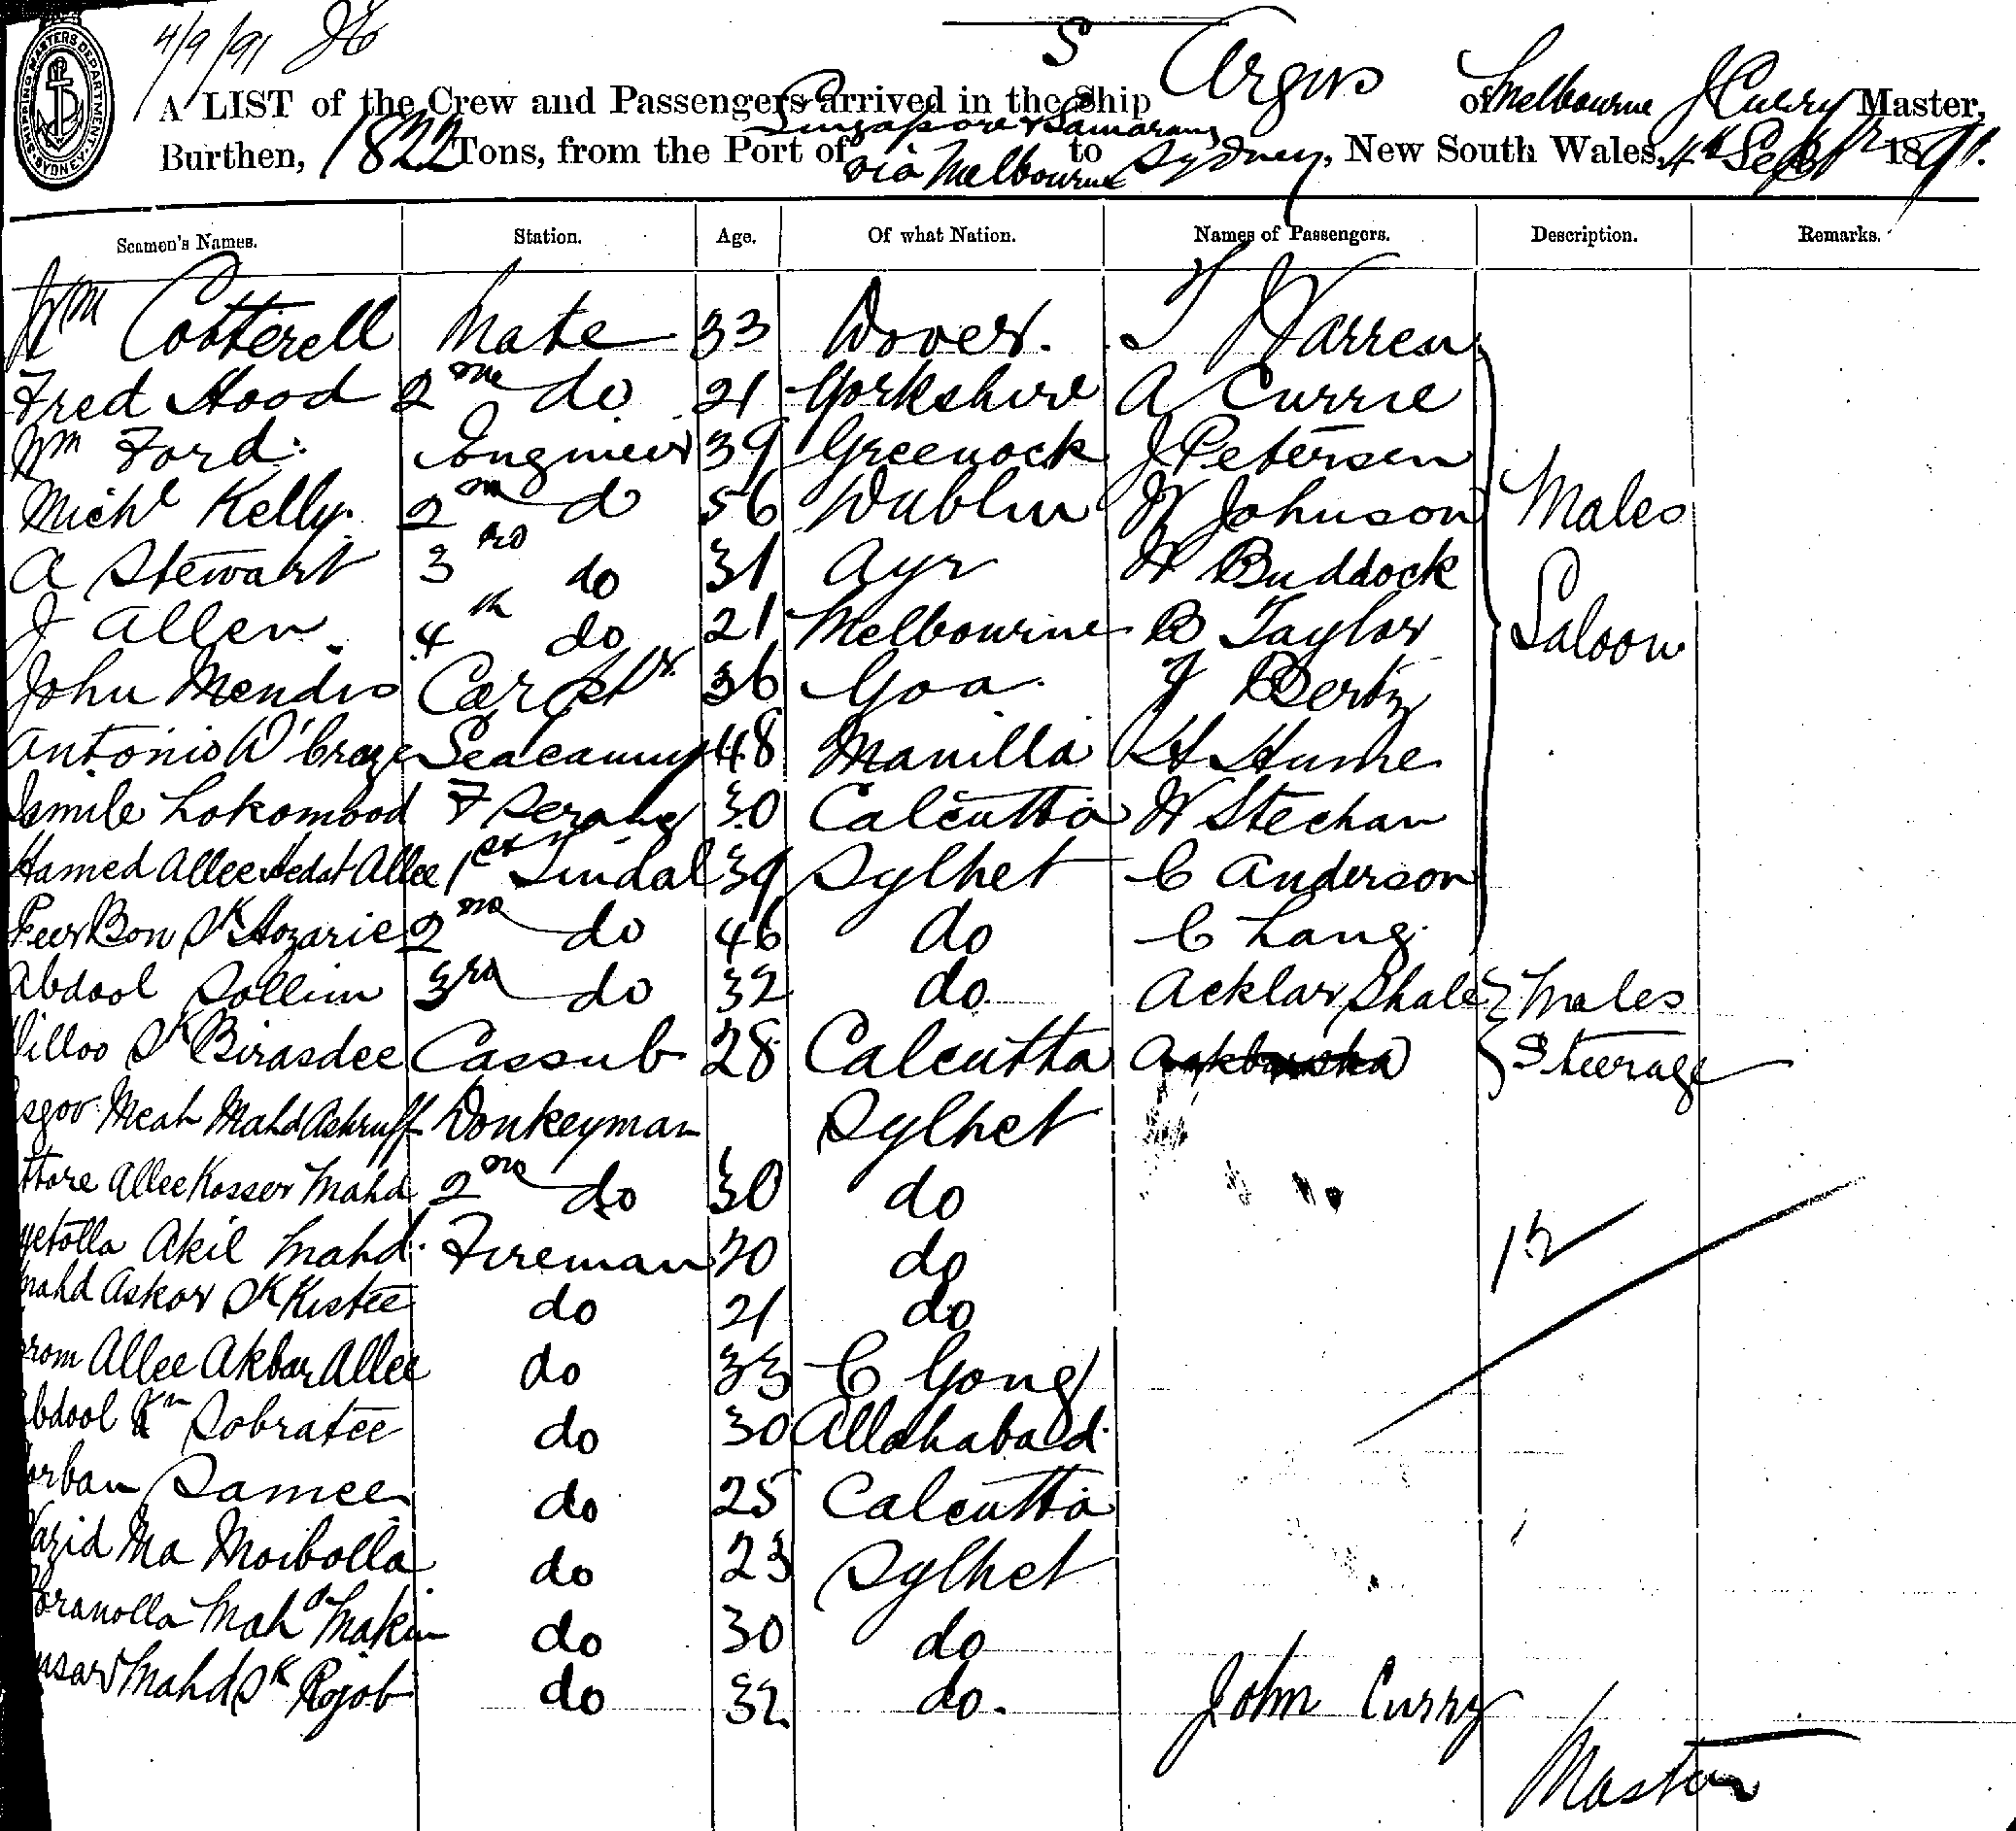 4/9/91
SHIPPING MASTERS DEPARTMENT SYDNEY
S Argus of Melbourne J Curry Master,
A LIST of the Crew and Passengers arrived in the Ship
Singapore & Samarang
Burthen, 1822 Tons, from the Port of via Melbourne to Sydney, New South Wales, 4th Septr 1891.
Seamen's Names. Station. Age. Of what Nation. Names of Passengers. Description. Remarks.
Wm Cotterell Mate 33 Dover. T Warren
Fred Hood 2nd do 21 Yorkshire A Currie
Wm Ford. Engineer 39 Greenock J Petersen
Michl Kelly. 2nd do 56 Dublin W Johnson Males
A Stewart 3rd do 31 Ayr W Buddock
J Allen. 4th do 21 Melbourne B Taylor Saloon
John Mendis Carptr. 36 Goa. J Bertz
Antonio D'Croze Seacunny 48 Manilla H Hume
Ismile Lokomood F Serang 30 Calcutta W Stechan
Hamed Allee Hedat Allee 1st Tindal 39 Sylhet C Anderson
Peer Bon Sk Hozarie 2nd do 46 do C Lang.
Abdool Sollim 3rd do 32 do. Acklar Shale Males
Dilloo Sk Birasdee Cassub 28 Calcutta Steerage
Meah Mahd Ashruff Donkeyman Sylhet
Allee Kosser Mahd 2nd do 30 do
Akil Mahd. Fireman 20 do 12
Mahd Askor Sk Kistee do 21 do
Allee Akbar Allee do 33 C Gong
Abdool Kn Sobratee do 30 Allahabad.
Samee do 25 Calcutta
Ma Moibolla do 23 Sylhet
Mahd Makin do 30 do
Mahd Sk Rojob do 32 do.
John Curry
Master